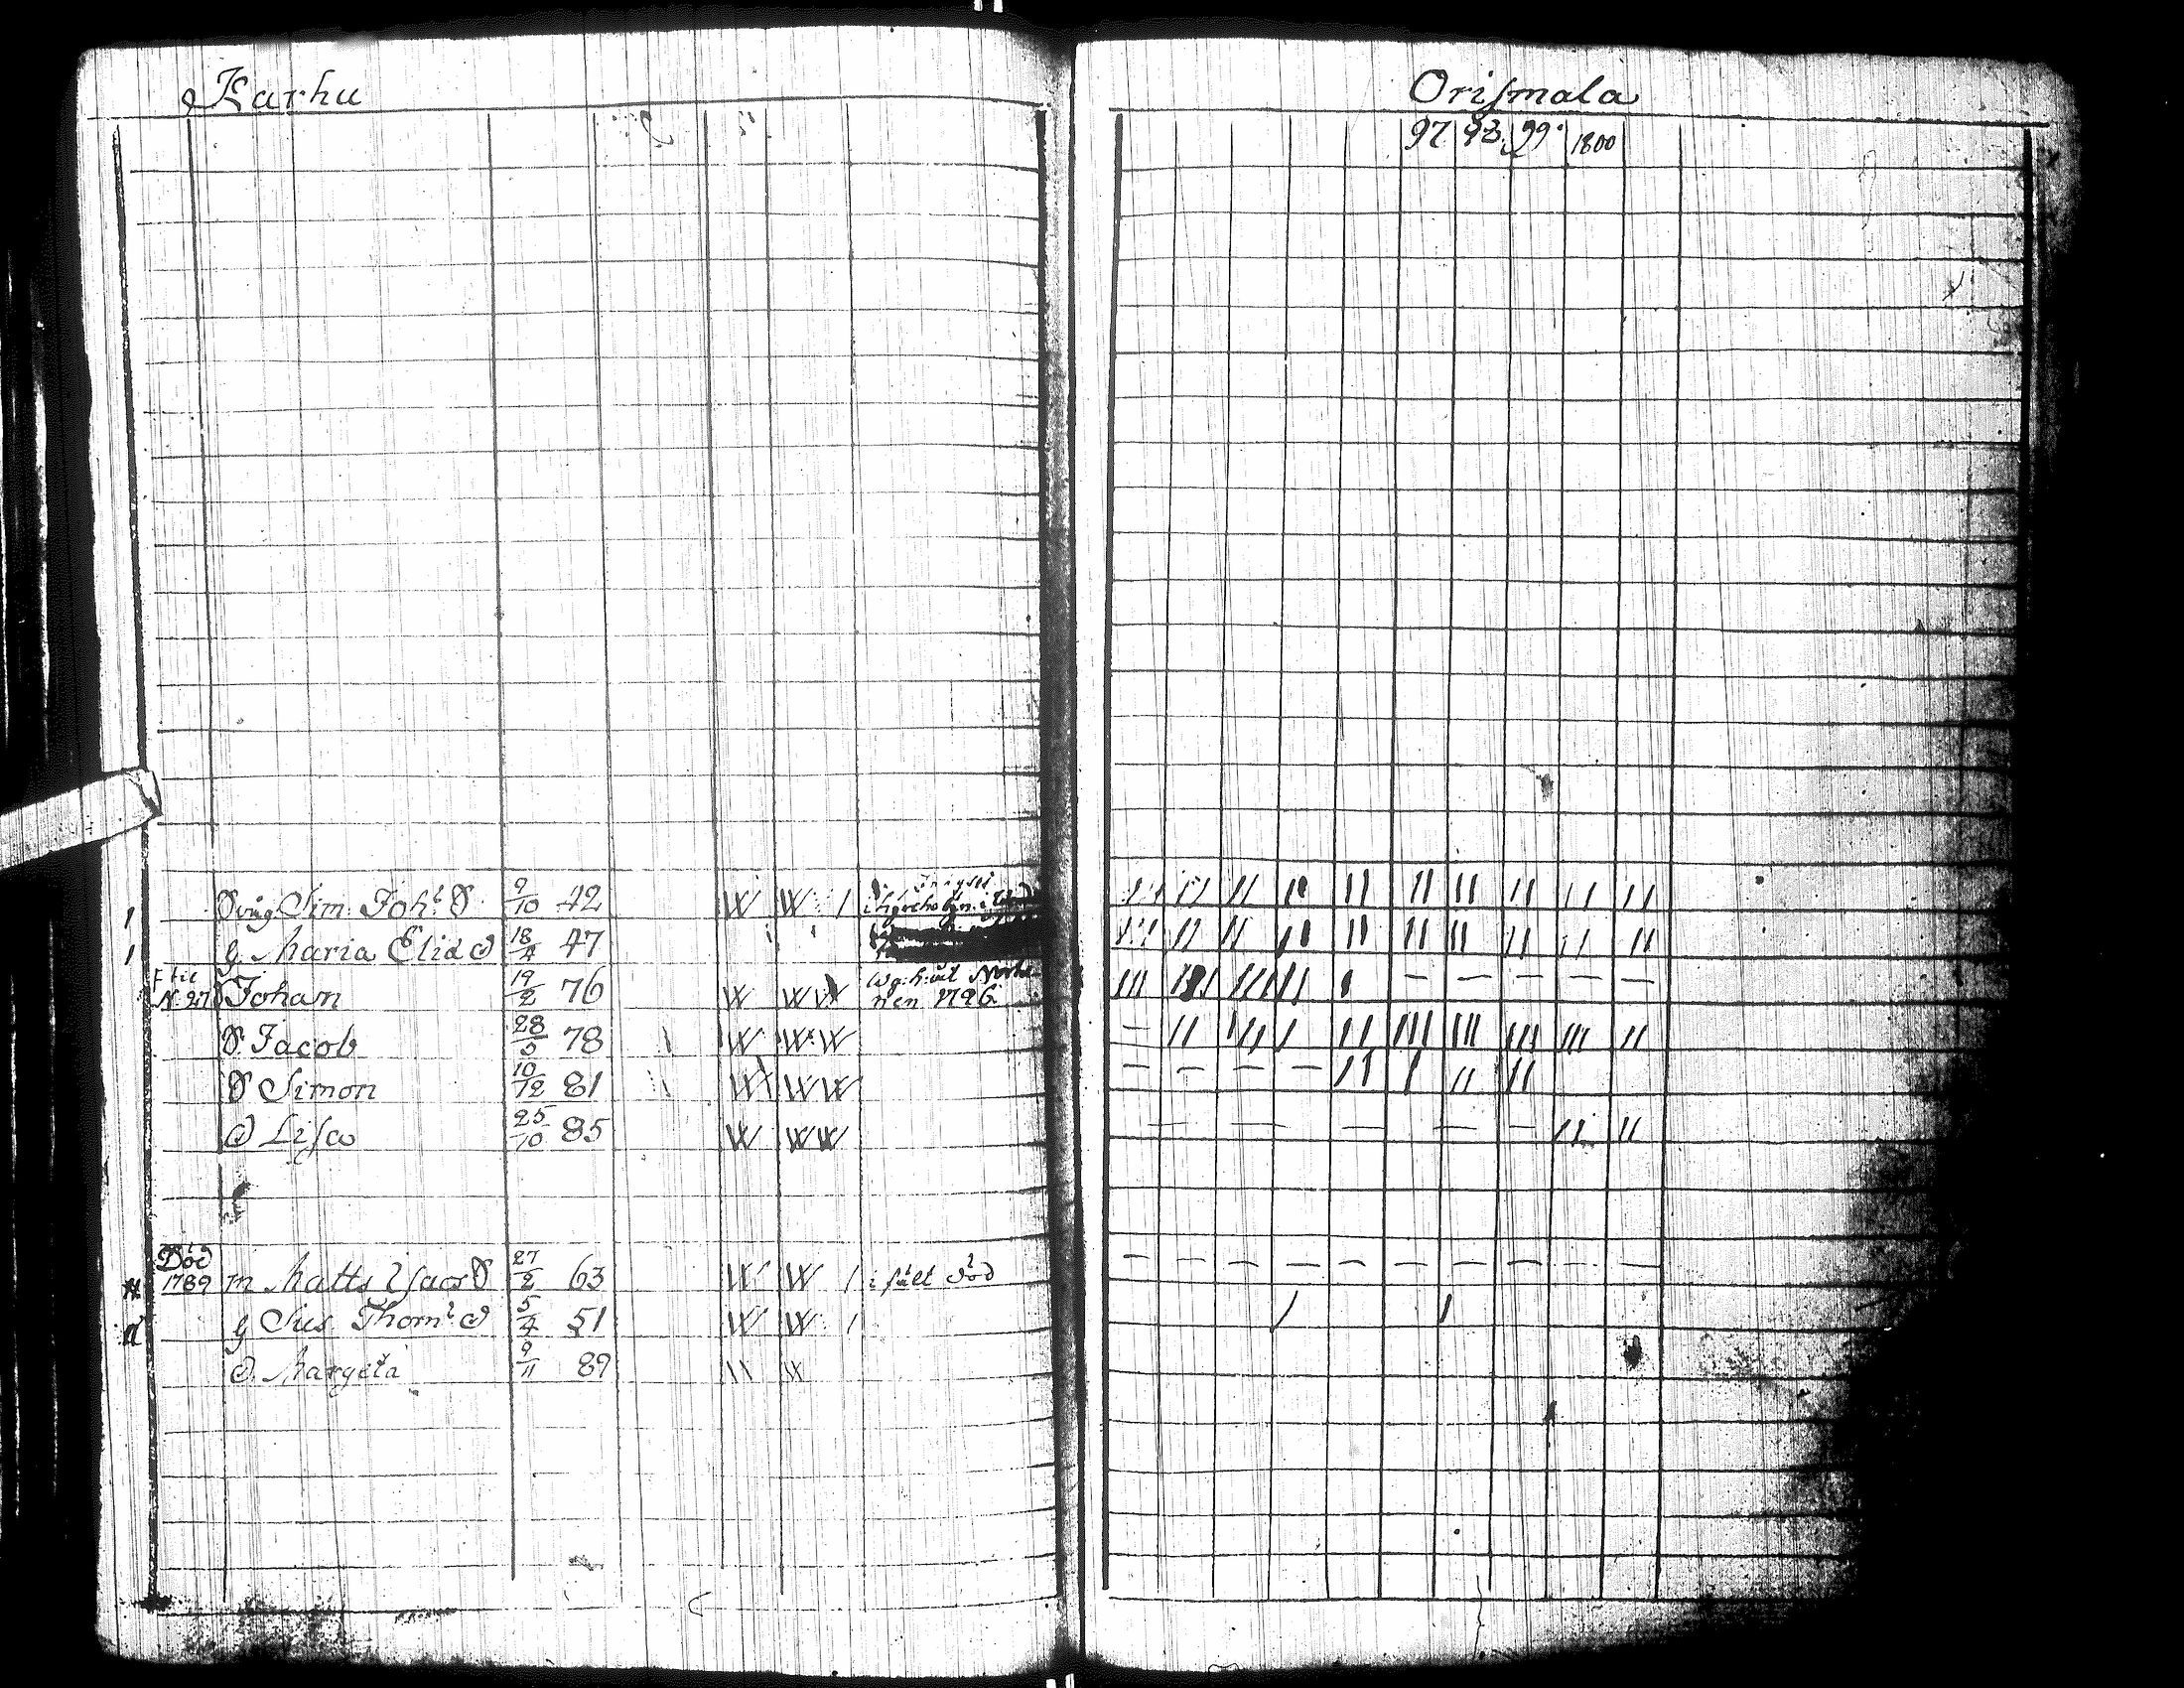 Karhu
Orismala
97 98 99 1800
Svåg Sim: Joh: S 9/10 42
g Maria Elia D 18/4 47
F til
N. 27 Johan 19/2 76 wg: h: ut
nen 1796
S. Jacob 28/5 78
S Simon 10/12 81
D Lisa 25/10 85
Död
1789 m Matts Isacs S 27/2 63 i fält död
g Sus Thom: D 5/4 51
D. Margeta 9/11 89